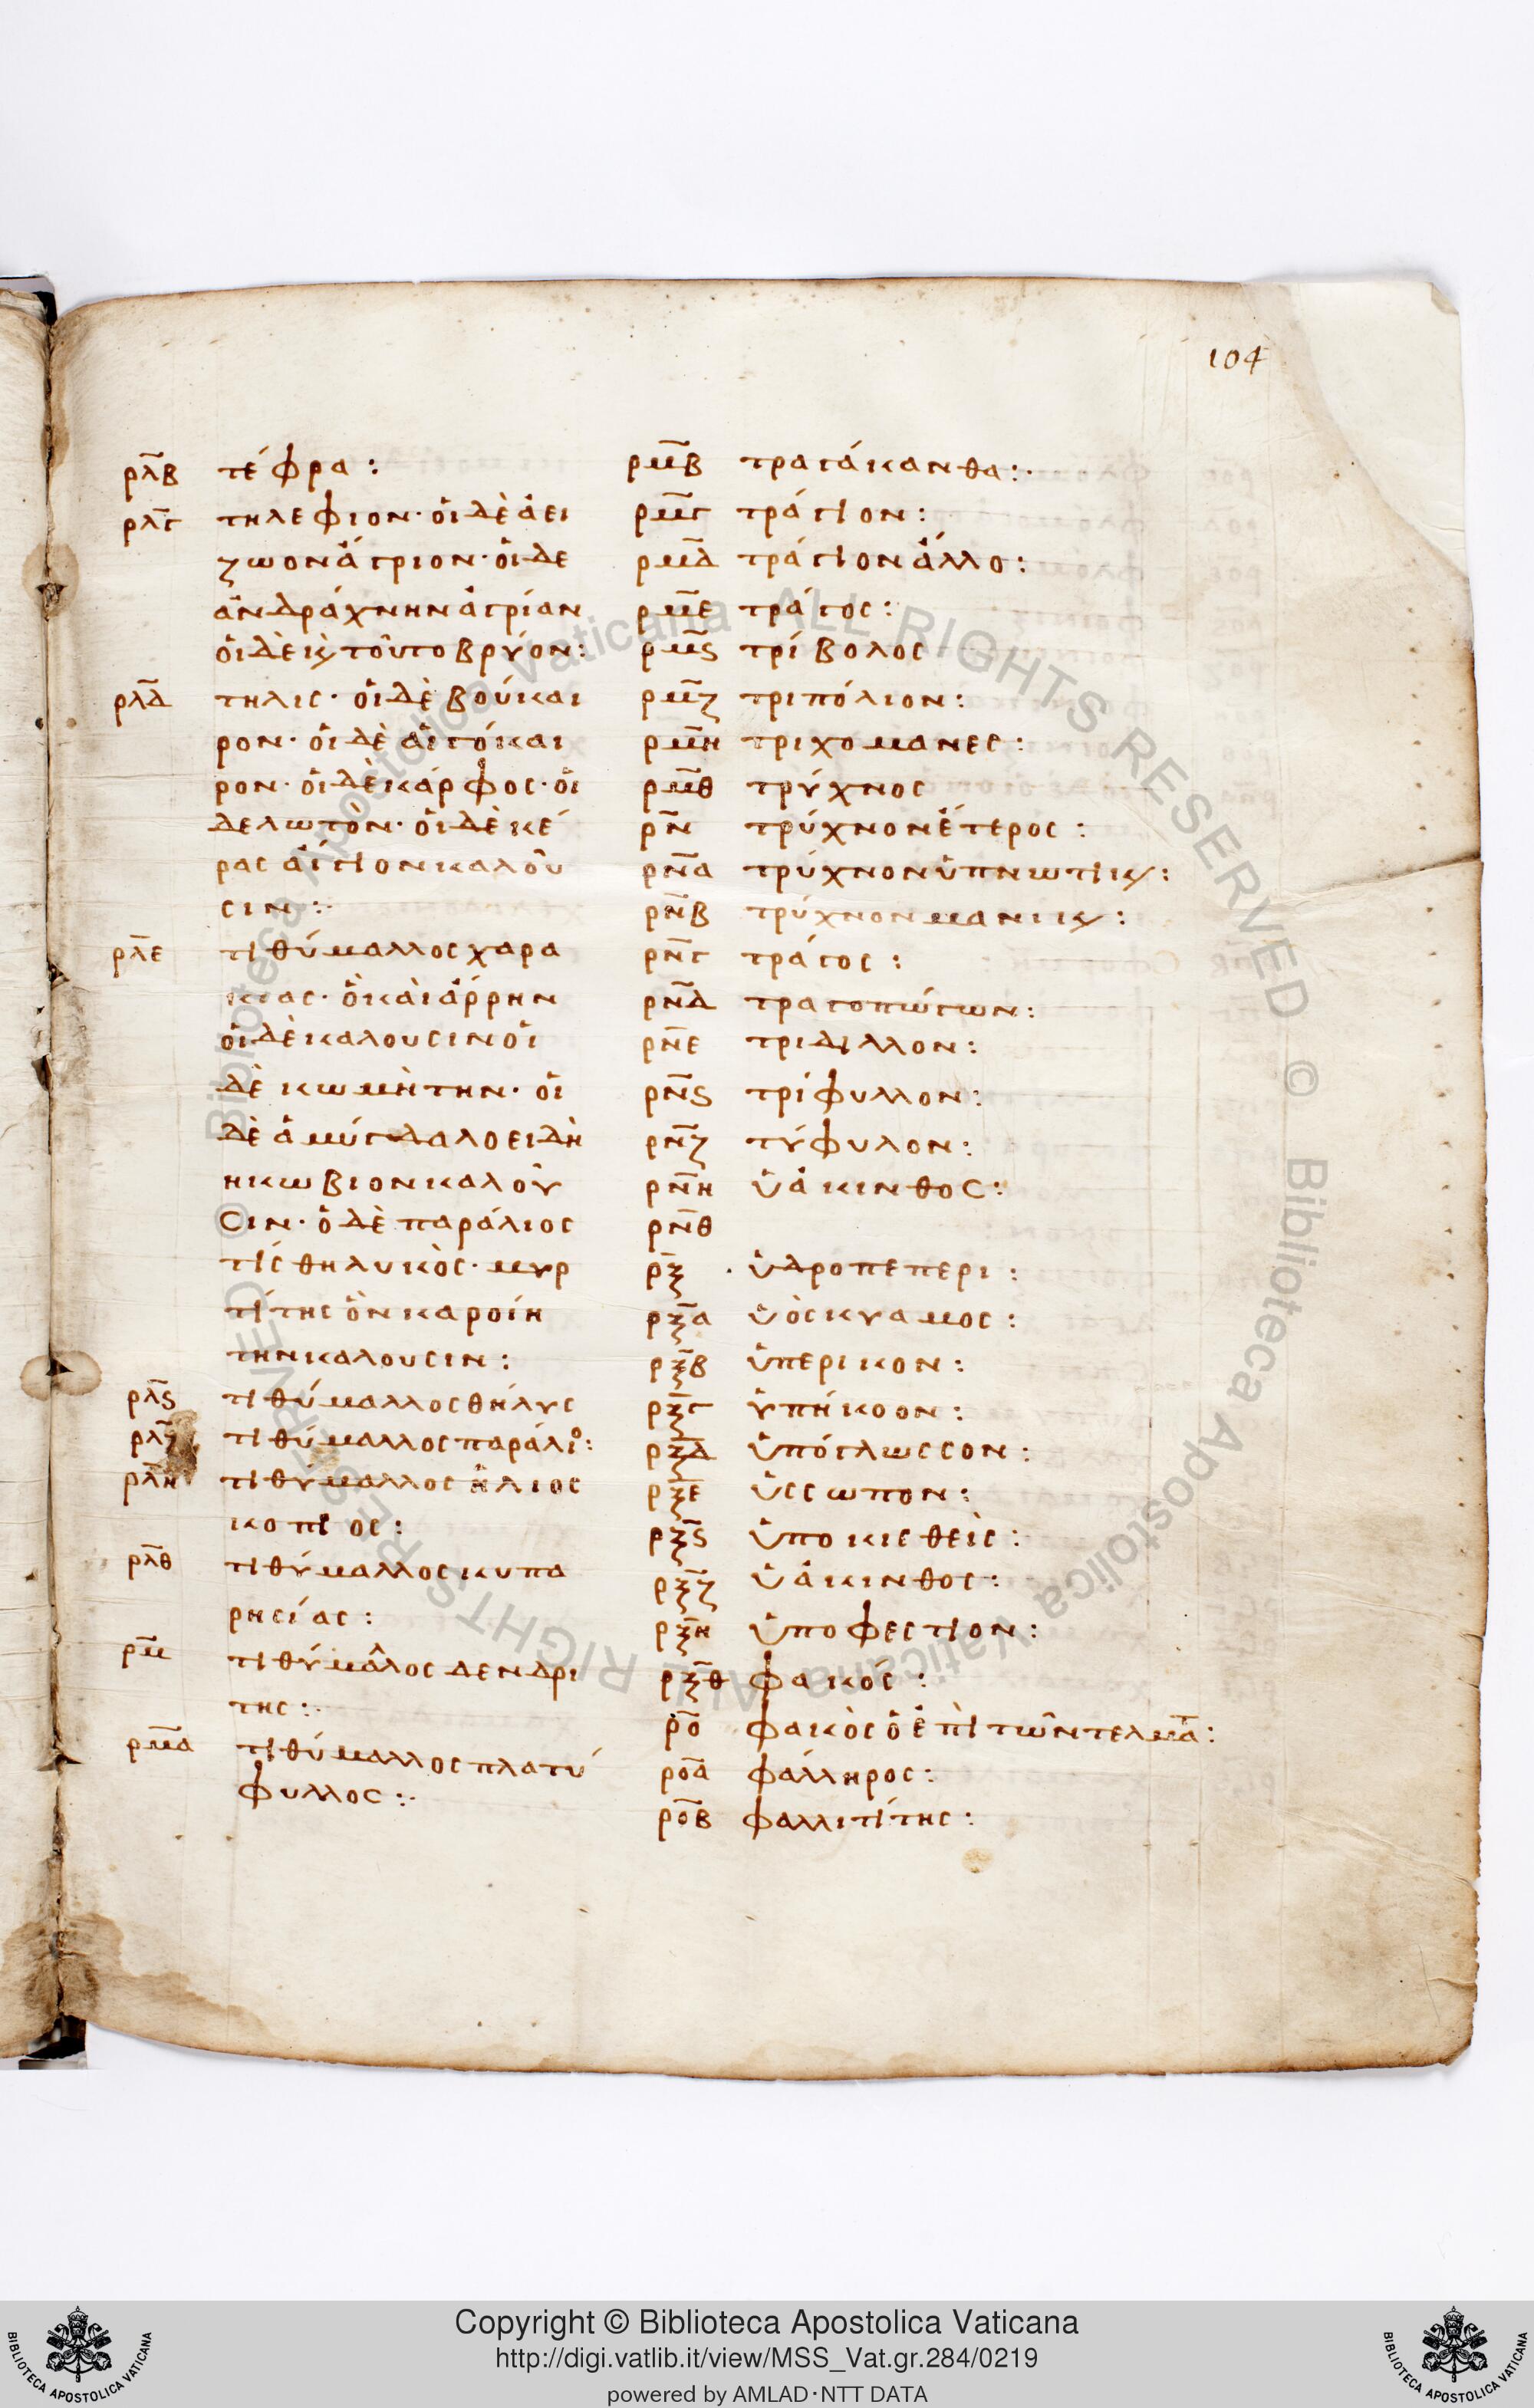 104
ρλβ τέφρα:
ρλγ τηλεφιον· οἱ δὲ ἀει
ζωον ἄγριον· οἱ δε
ἀνδράχνην ἀγρίαν
οἱ δὲ κ(αὶ) τοῦτο βρύον:
ρλδ τηλις· οἱ δὲ βούκαι
ρον· οἱ δὲ αἰγόκαι
ρον· οἱ δὲ κάρφος· οἱ
δε λωτὸν· οἱ δὲ κέ
ρας αἴγιον καλοῦ
σιν:·
ρλε τιθύμαλλος χαρα
κιας· ὃ καὶ ἄρρην
οἱ δὲ καλουσιν οἱ
δὲ κωμήτην· οἱ
δὲ ἀμύγδαλοειδῆ
η κωβιον καλοῦ
σιν· ὁ δὲ παράλιος
τίς θηλυκὸς· μυρ
τίτης ὃν καροίη
την καλουσιν:
ρλς τιθύμαλλος θήλυς
ρλζ τιθύμαλλος παράλιο:
ρλη τιθύμαλλος ἥλιος
κοπιος:
ρλθ τιθύμαλλος κυπα
ρησίας:
ρμ τιθύμαλος δενδρι
της:·
ρμα τιθύμαλλος πλατύ
φυλλος:·
ρμβ τραγάκανθα:·
ρμγ τράγιον:
ρμδ τράγιον ἄλλο:
ρμε τράγος:
ρμς τρίβολος
ρμζ τριπόλιον:
ρμη τριχομανες:
ρμθ τρύχνος
ρν τρύχνον ἕτερος:
ρνα τρύχνον ὑπνωτικ:
ρνβ τρύχνον μανικ:
ρνγ τράγος:
ρνδ τραγοπώγων:
ρνε τριδιλλον:
ρνς τρίφυλλον:
ρνζ τύφυλον:
ρνη ὑάκινθος:
ρνθ
ρξ · ὑδροπεπερι:
ρξα ὑὸσκυαμος:
ρξβ ὑπερικον:
ρξγ ὑπήκοον:
ρξδ ὑπόγλωσσον:
ρξε ὑσσωπον:
ρξς ὑποκισθεὶς:
ρξζ ὑάκινθος:
ρξη ὑποφεστιον:
ρξθ φακός:
ρο φακὸς ὁ ἐπὶ τῶν τελματ:
ροα φάλληρος:
ροβ φαλλιτίτης:
Copyright © Biblioteca Apostolica Vaticana
http://digi.vatlib.it/view/MSS_Vat.gr.284/0219
powered by AMLAD·NTT DATA
BIBLIOTECA APOSTOLICA VATICANA
BIBLIOTECA APOSTOLICA VATICANA
© Biblioteca Apostolica Vaticana ALL RIGHTS RESERVED © Biblioteca Apostolica Vaticana ALL RIGHTS RESERVED